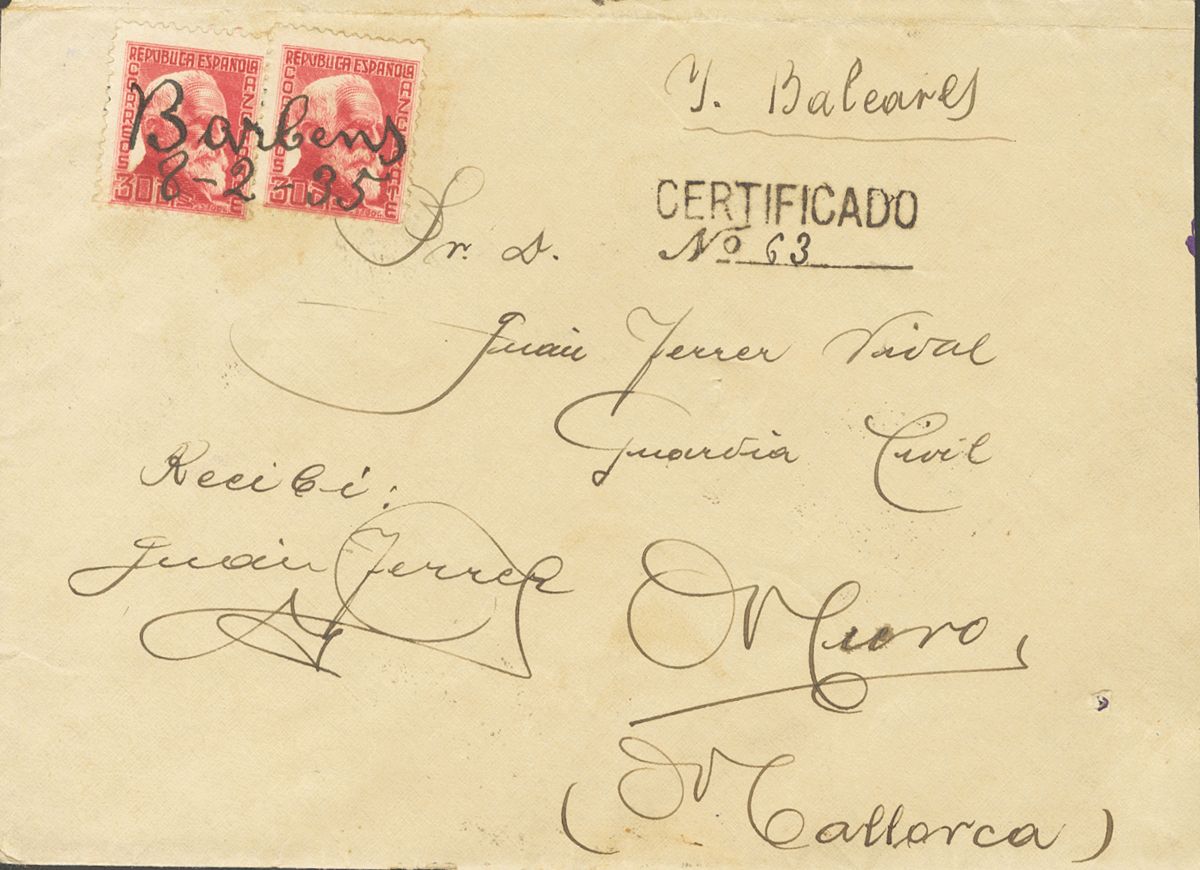 REPÚBLICA ESPAÑOLA
CORREOS
30
REPÚBLICA ESPAÑOLA
30
Barbens
8-2-35
Y. Baleares
CERTIFICADO
Nº 63
Sr. D.
Juan Ferrer Vidal
Guardia Civil
Recibí:
Juan Ferrer
Muro,
(Mallorca)